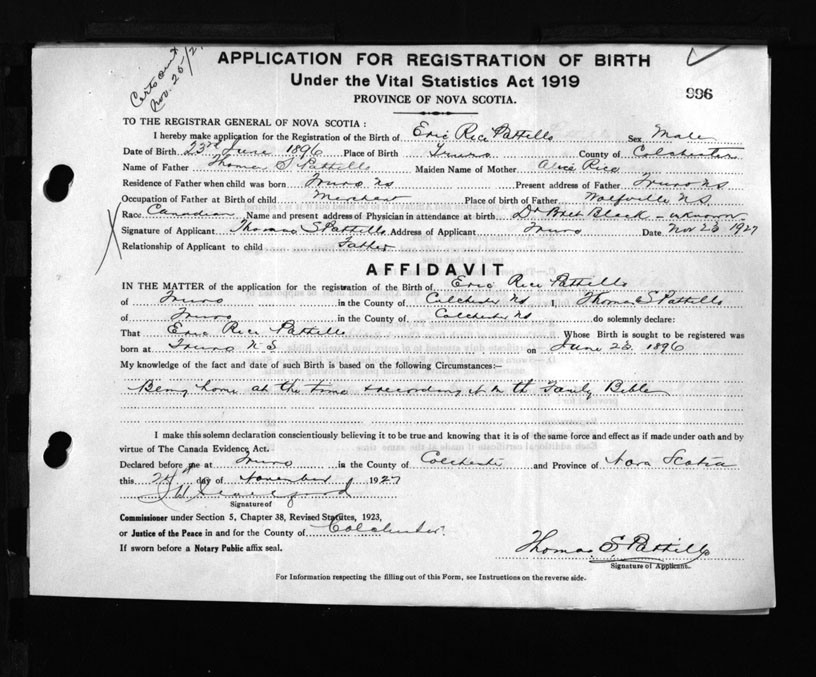 Certs out
Nov. 25/2
APPLICATION FOR REGISTRATION OF BIRTH
Under the Vital Statistics Act 1919
996
PROVINCE OF NOVA SCOTIA.
TO THE REGISTRAR GENERAL OF NOVA SCOTIA :
I hereby make application for the Registration of the Birth of Eric Rice Pattillo Sex Male
Date of Birth 23rd June 1896 Place of Birth Truro County of Colchester
Name of Father Thomas S Pattillo Maiden Name of Mother Alice Rice
Residence of Father when child was born Truro NS Present address of Father Truro NS
Occupation of Father at Birth of child Place of birth of Father Wolfville N.S.
Race Canadian Name and present address of Physician in attendance at birth Dr Black - unknown
Signature of Applicant Thomas S Pattillo Address of Applicant Truro Date Nov 23 1927
Relationship of Applicant to child Father
AFFIDAVIT
IN THE MATTER of the application for the registration of the Birth of Eric Rice Pattillo
of Truro in the County of Colchester NS I, Thomas S Pattillo
of Truro in the County of Colchester NS do solemnly declare:
That Eric Rice Pattillo Whose Birth is sought to be registered was
born at Truro N.S. on June 23. 1896
My knowledge of the fact and date of such Birth is based on the following Circumstances:—
Being home at the time & recording it in th Family Bible
I make this solemn declaration conscientiously believing it to be true and knowing that it is of the same force and effect as if made under oath and by
virtue of The Canada Evidence Act.
Declared before me at Truro in the County of Colchester and Province of Nova Scotia
this day of November 1927
Signature of
Commissioner under Section 5, Chapter 38, Revised Statutes, 1923,
or Justice of the Peace in and for the County of Colchester.
If sworn before a Notary Public affix seal.
Thomas S Pattillo
Signature of Applicant.
For Information respecting the filling out of this Form, see Instructions on the reverse side.